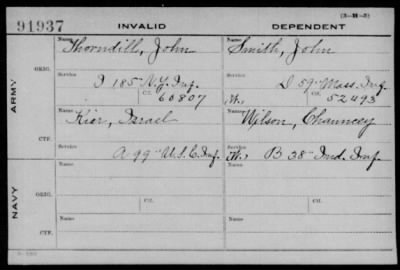 (3-H-3)
91937 INVALID DEPENDENT
ARMY
ORIG.
Name Thorndill, John
Service I 185" N.Y. Inf.
Cf. 60807
Name Smith, John
Service D 59" Mass. Inf.
W. Cf. 52493
CTF.
Name Kier, Israel
Service A 99" U.S.C. Inf.
Name Wilson, Chauncey
Service B 38" Ind. Inf.
NAVY
ORIG.
Name
Service
Name
Service
CTF.
Name
Service
Name
Service